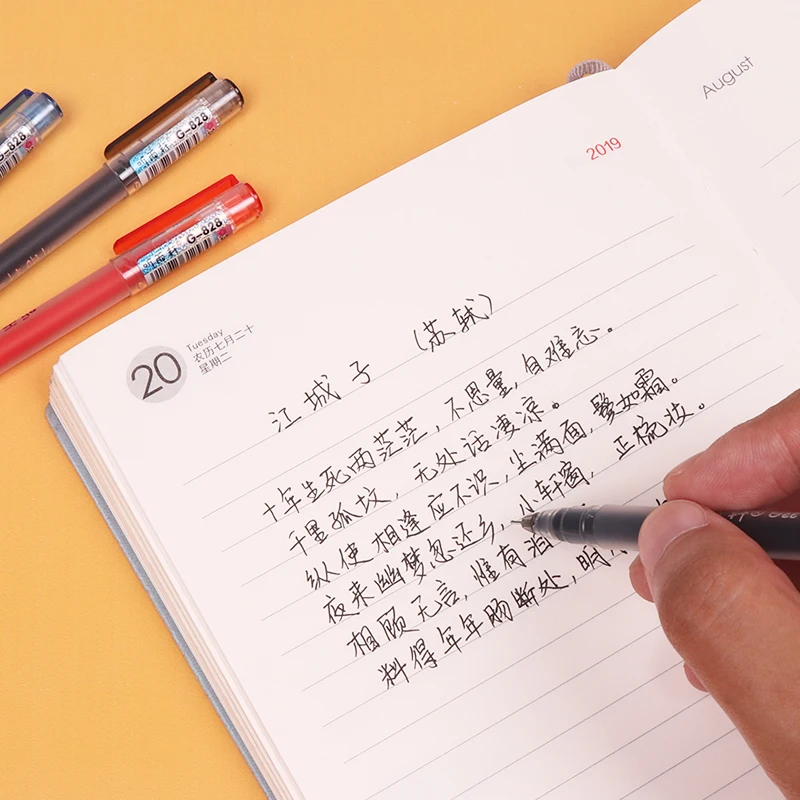 August
2019
G-828
G-828
G-828
20
Tuesday
农历七月二十
星期二
江城子 (苏轼)
十年生死两茫茫，不思量，自难忘。
千里孤坟，无处话凄凉。
纵使相逢应不识，尘满面，鬓如霜。
夜来幽梦忽还乡，小轩窗，正梳妆。
相顾无言，惟有泪
料得年年肠断处，明